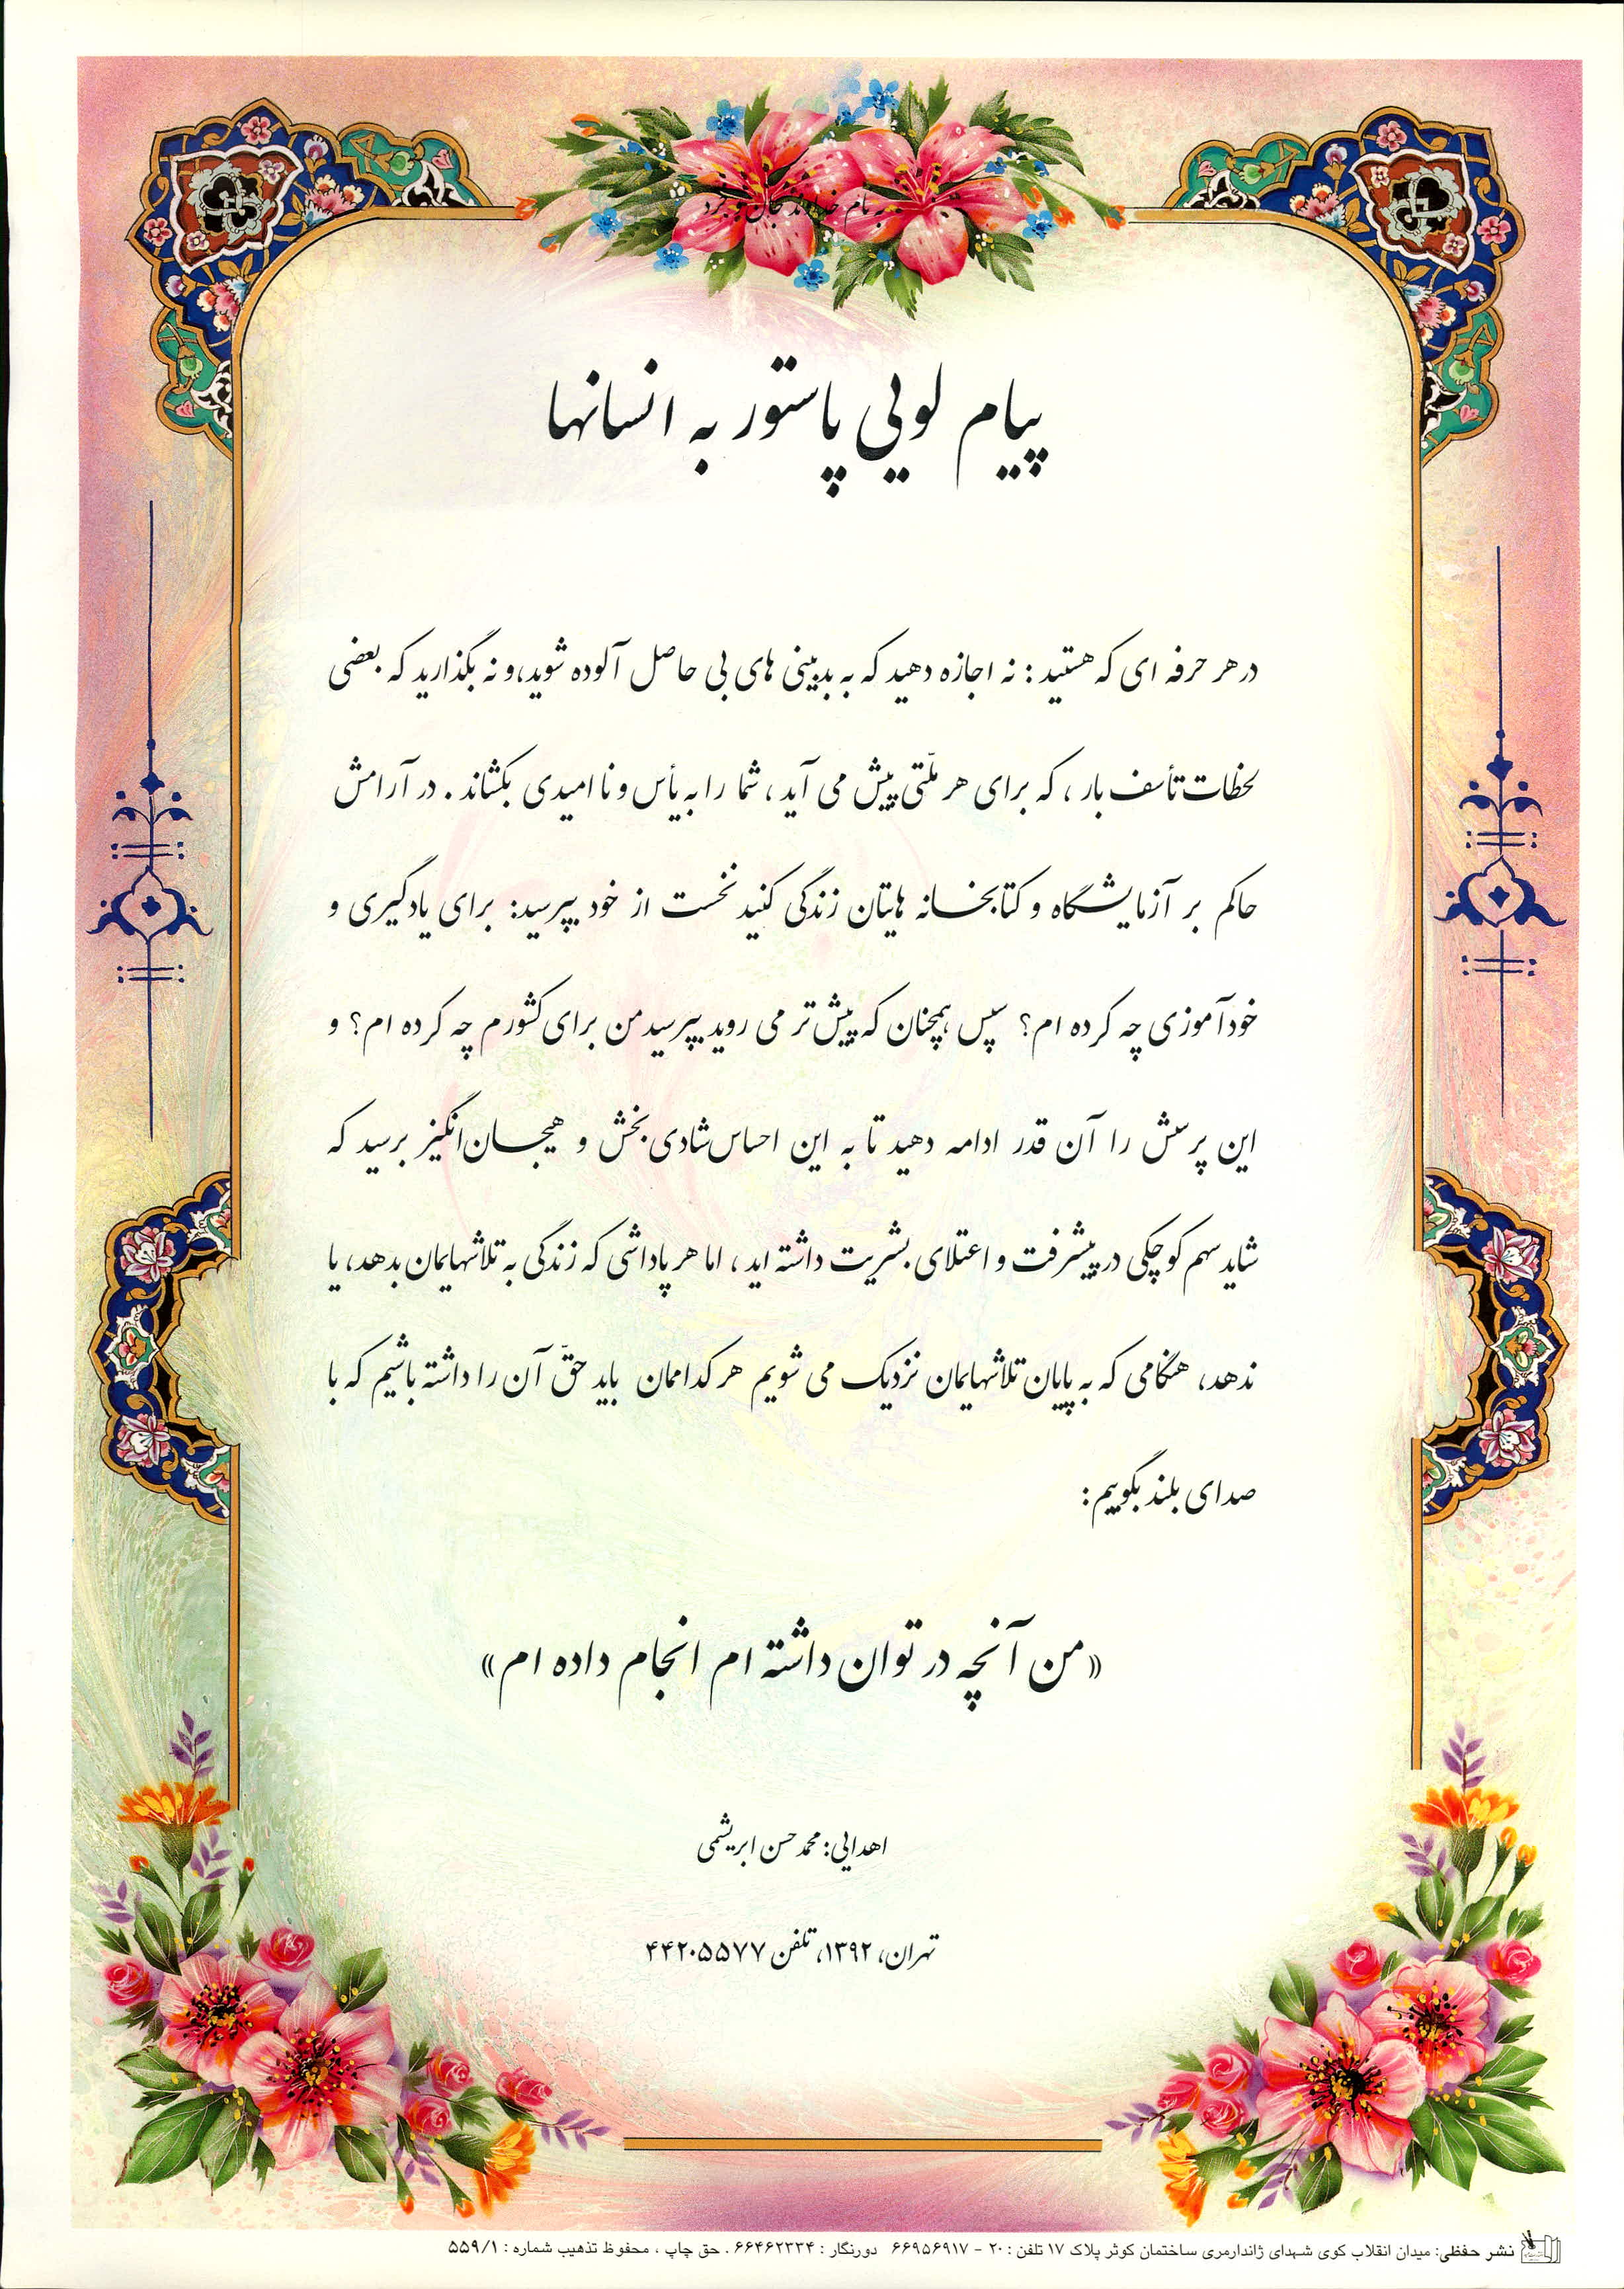 به نام خداوند جان و خرد
پیام لویی پاستور به انسانها
در هر حرفه ای که هستید : نه اجازه دهید که به بدبینی های بی حاصل آلوده شوید، و نه بگذارید که بعضی
لحظات تأسف بار ، که برای هر ملّتی پیش می آید ، شما را به یأس و نا امیدی بکشاند . در آرامش
حاکم بر آزمایشگاه و کتابخانه هایتان زندگی کنید نخست از خود بپرسید: برای یادگیری و
خودآموزی چه کرده ام؟ سپس همچنان که پیش تر می روید بپرسید من برای کشورم چه کرده ام؟ و
این پرسش را آن قدر ادامه دهید تا به این احساس شادی بخش و هیجان انگیز برسید که
شاید سهم کوچکی در پیشرفت و اعتلای بشریت داشته اید ، اما هر پاداشی که زندگی به تلاشهایمان بدهد، یا
ندهد، هنگامی که به پایان تلاشهایمان نزدیک می شویم هر کداممان باید حقّ آن را داشته باشیم که با
صدای بلند بگوییم:
«من آنچه در توان داشته ام انجام داده ام»
اهدایی: محمد حسن ابریشمی
تهران، ۱۳۹۲، تلفن ۴۴۲۰۵۵۷۷
نشر حفظی: میدان انقلاب کوی شهدای ژاندارمری ساختمان کوثر پلاک ۱۷ تلفن : ۲۰ - ۶۶۹۵۶۹۱۷ دورنگار : ۶۶۴۶۲۳۳۴ . حق چاپ ، محفوظ تذهیب شماره : ۵۵۹/۱